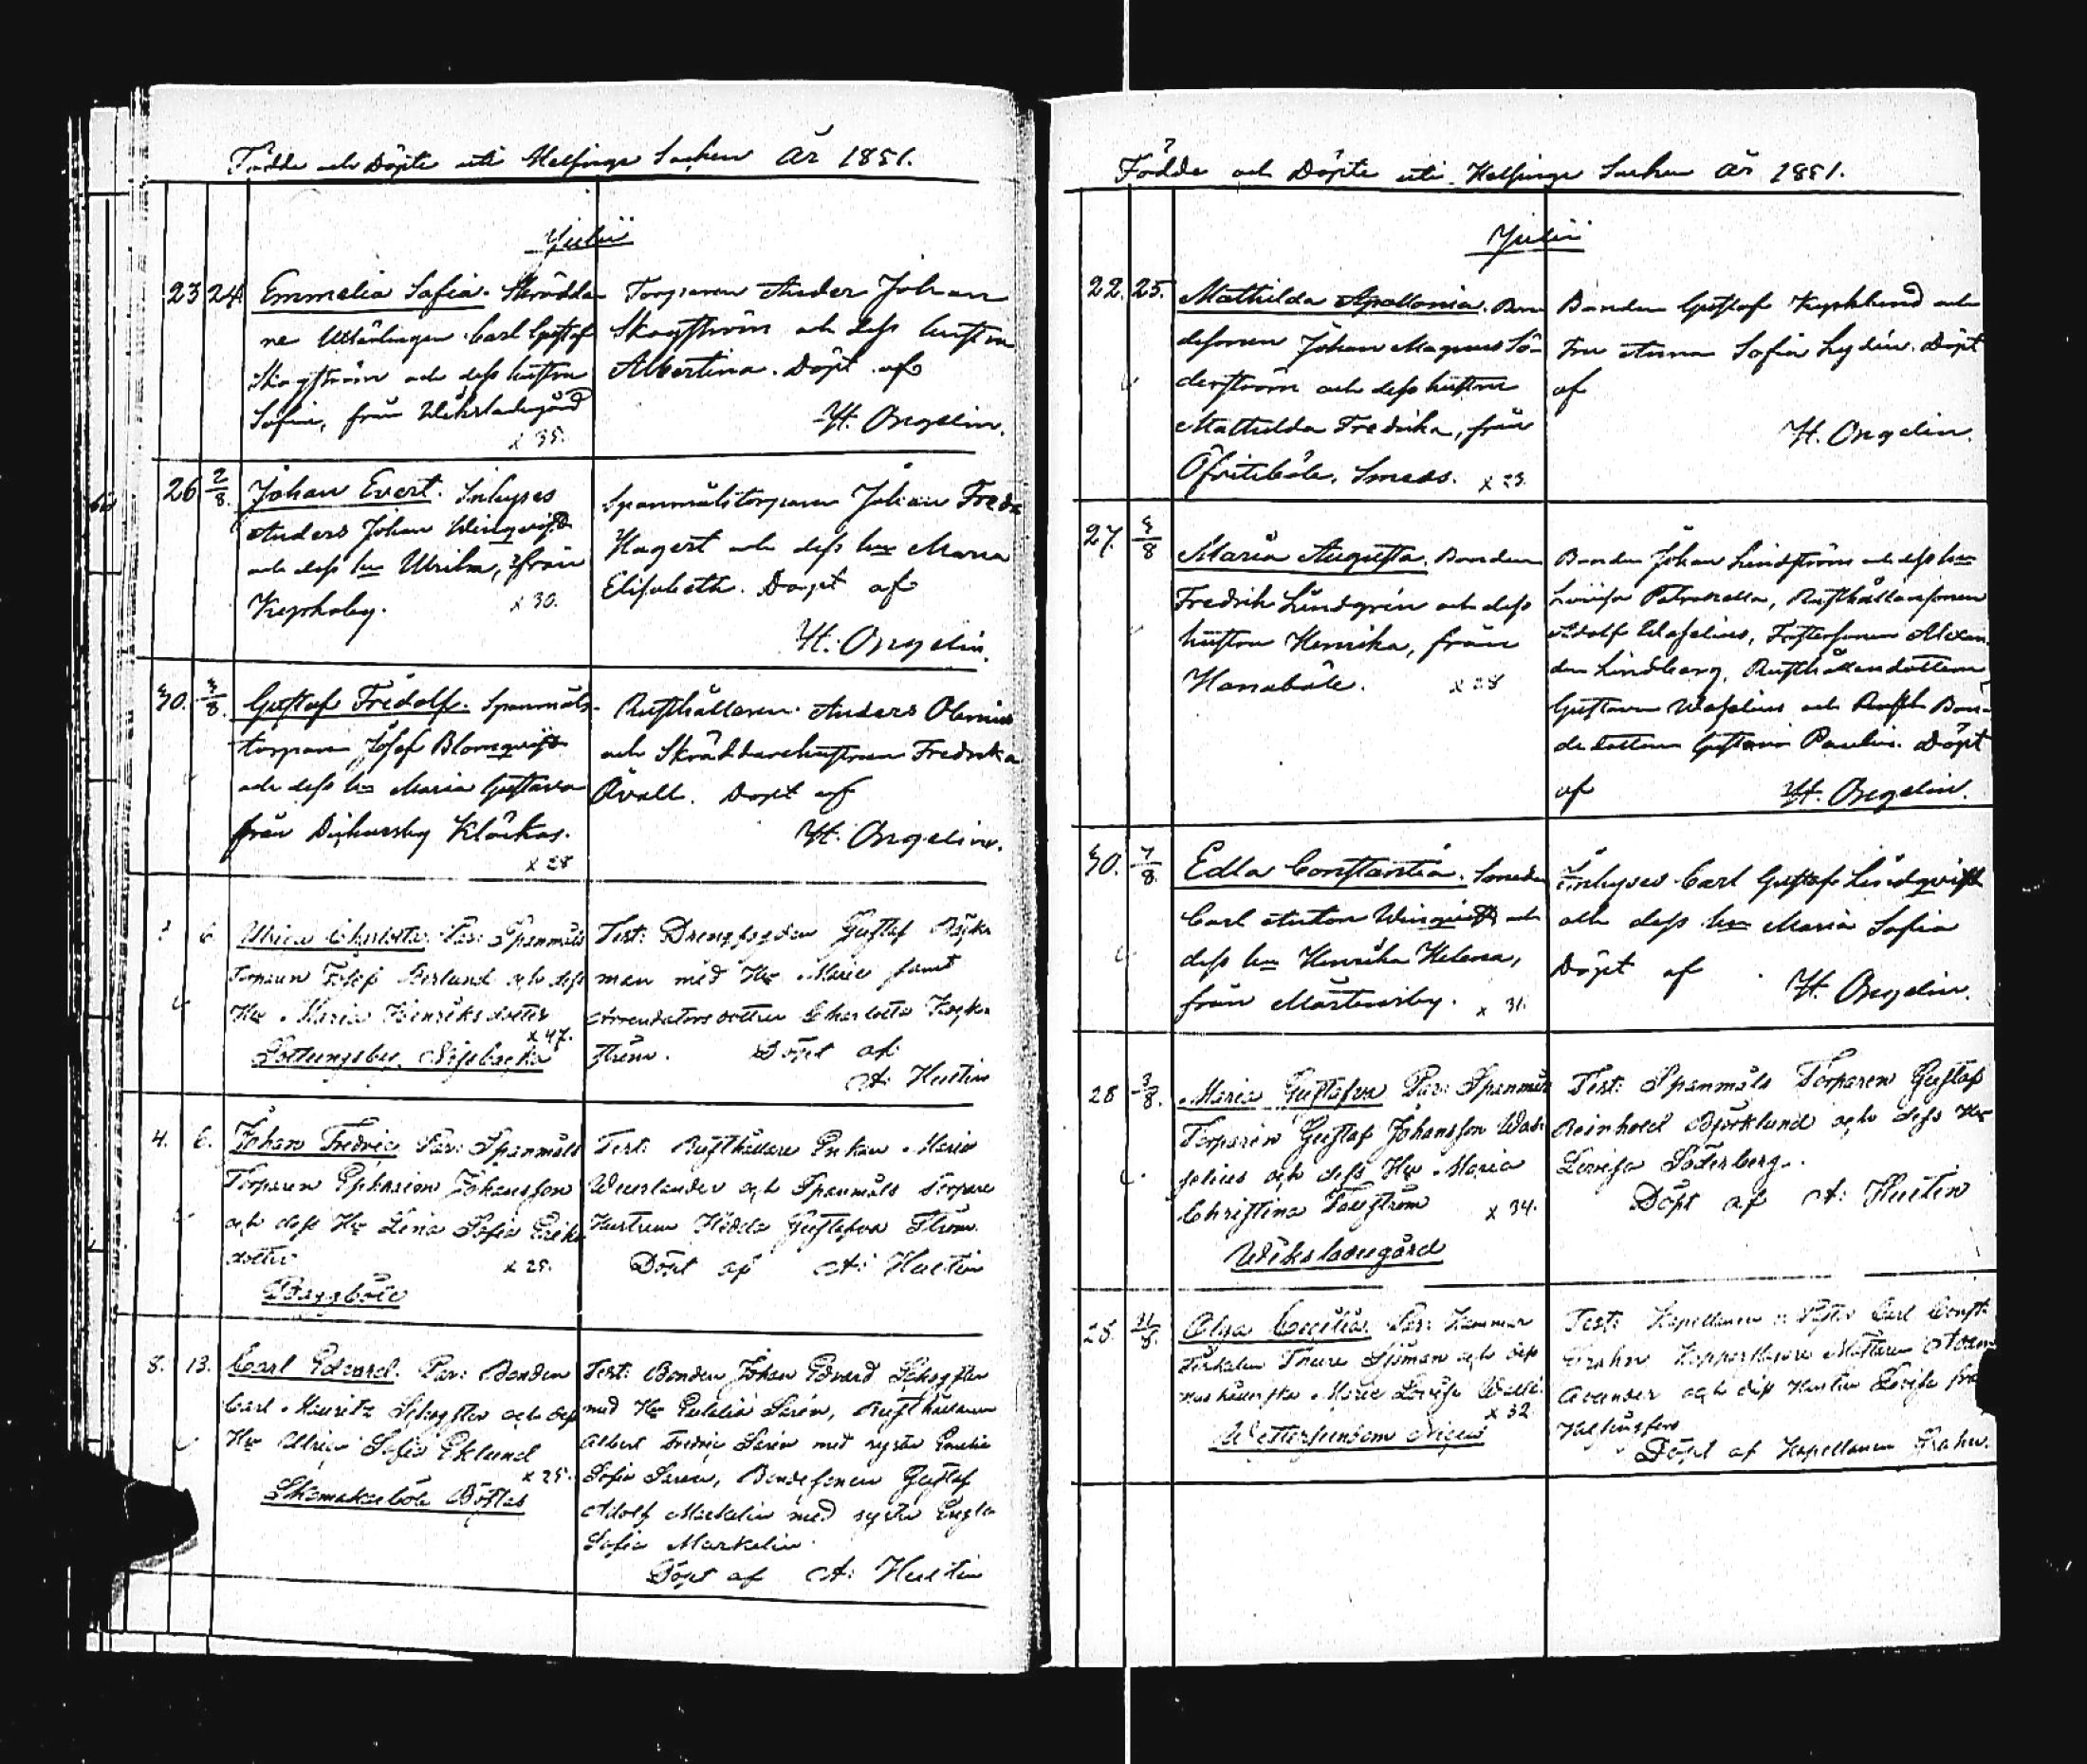 Födde och Döpte uti Helsinge Socken År 1851.
Julii
23 24. Emmelia Sofia. Skrädda-
re Utlärlingen Carl Gustaf
Skogström och dess hustru
Sofia, från Wiksladugård
x 35.
Torparen Ander Johan
Skogström och dess hustru
Albertina. Döpt af
H. Ongelin.
26 2/8. Johan Evert. Inhyses
Anders Johan Winqvist
och dess hu Ulrika, från
Kephaby.
x 30.
Spanmålstorparen Johan Fredr
Hagert och dess hu Maria
Elisabeth. Döpt af
H. Ongelin.
30. 3/8. Gustaf Fridolf. Spanmåls-
torparen Josef Blomqvist
och dess hu Maria Gustava
från Dickursby Klackas.
x 28
Rusthållaren Anders Olenius
och Skräddarehustrun Fredrika
Qvall. Döpt af
H. Ongelin.
6. Ulrica Charlotta Par: Spanmåls
Torparen Josef Österlund och dess
Hu Maria Henriksdotter
x 47.
Sottungsby, Nissbacka
Test: Drengfogden Gustaf Böck-
man med Hu Maria samt
Arrendators dottren Charlotta
ström. Döpt af
A: Hultin
4. 6. Johan Fredric Par: Spanmåls
Torparen Johansson
och dess Hu Lena Sofia Eriks
dotter x 25.
Baggböle
Test: Rusthållare Enkan Maria
Weurlander och Spanmåls Torpare
Hustrun Hedda Gustafva Ström
Döpt af A: Hultin
8. 13. Carl Edvard. Par: Bonden
Carl Mauritz Skogster och dess
Hu Ulrica Sofia Eklund
x 25.
Skomakarböle Böstas
Test: Bonden Johan Edvard Skogster
med Hu Eulalia Sarén, Rusthållaren
Albert Fredric Sarén med syster Emelie
Sofia Sarén, Bondesonen Gustaf
Adolf Markelin med syster
Sofia Markelin.
Döpt af A: Hultin
Födde och Döpte uti Helsinge Socken År 1851.
Julii
22. 25. Mathilda Apollonia. Bon
desonen Johan Magnus Sö-
derström och dess hustru
Mathilda Fredrika, från
Öfvitsböle, Smeds. x 23.
Bonden Gustaf Kyrklund och
Fru Anna Sofia Lydén. Döpt
af
H. Ongelin.
27. 3/8 Maria Augusta. Bonden
Fredrik Lindgrén och dess
hustru Henrika, från
Hanaböle. x 28
Bonden Johan Lindström och dess hu
Lovisa Petronella, Rusthållaresonen
Adolf Wasenius, Fostersonen Alexan-
der Lindberg, Rusthållaredottern
Gustava Waselius och Bon-
de dottern Gustava Paulin. Döpt
af H. Ongelin.
30. 7/8. Edla Constantia. Smeden
Carl Anton Winqvist och
dess hu Henrika Helena,
från Mårtensby. x 31.
Inhyses Carl Gustaf Lindqvist
och dess hu Maria Sofia
Döpt af H. Ongelin.
28 3/8. Maria Gustafva Par: Spanmåls
Torparen Gustaf Johansson Was-
selius och dess Hu Maria
Christina x 34.
Wiksladugård
Test: Spanmåls Torparen Gustaf
Reinhold Björklund och dess Hu
Lovisa Söderberg.
Döpt af A: Hultin
28. 31/8. Olga Cecilia. Par:
Thure Sjöman och dess
Maria Lovisa
x 32.
Test: Kapellanen Carl Const:
Grahn
och dess Hustru Lovisa
Helsingfors
Döpt af Kapellanen Grahn.